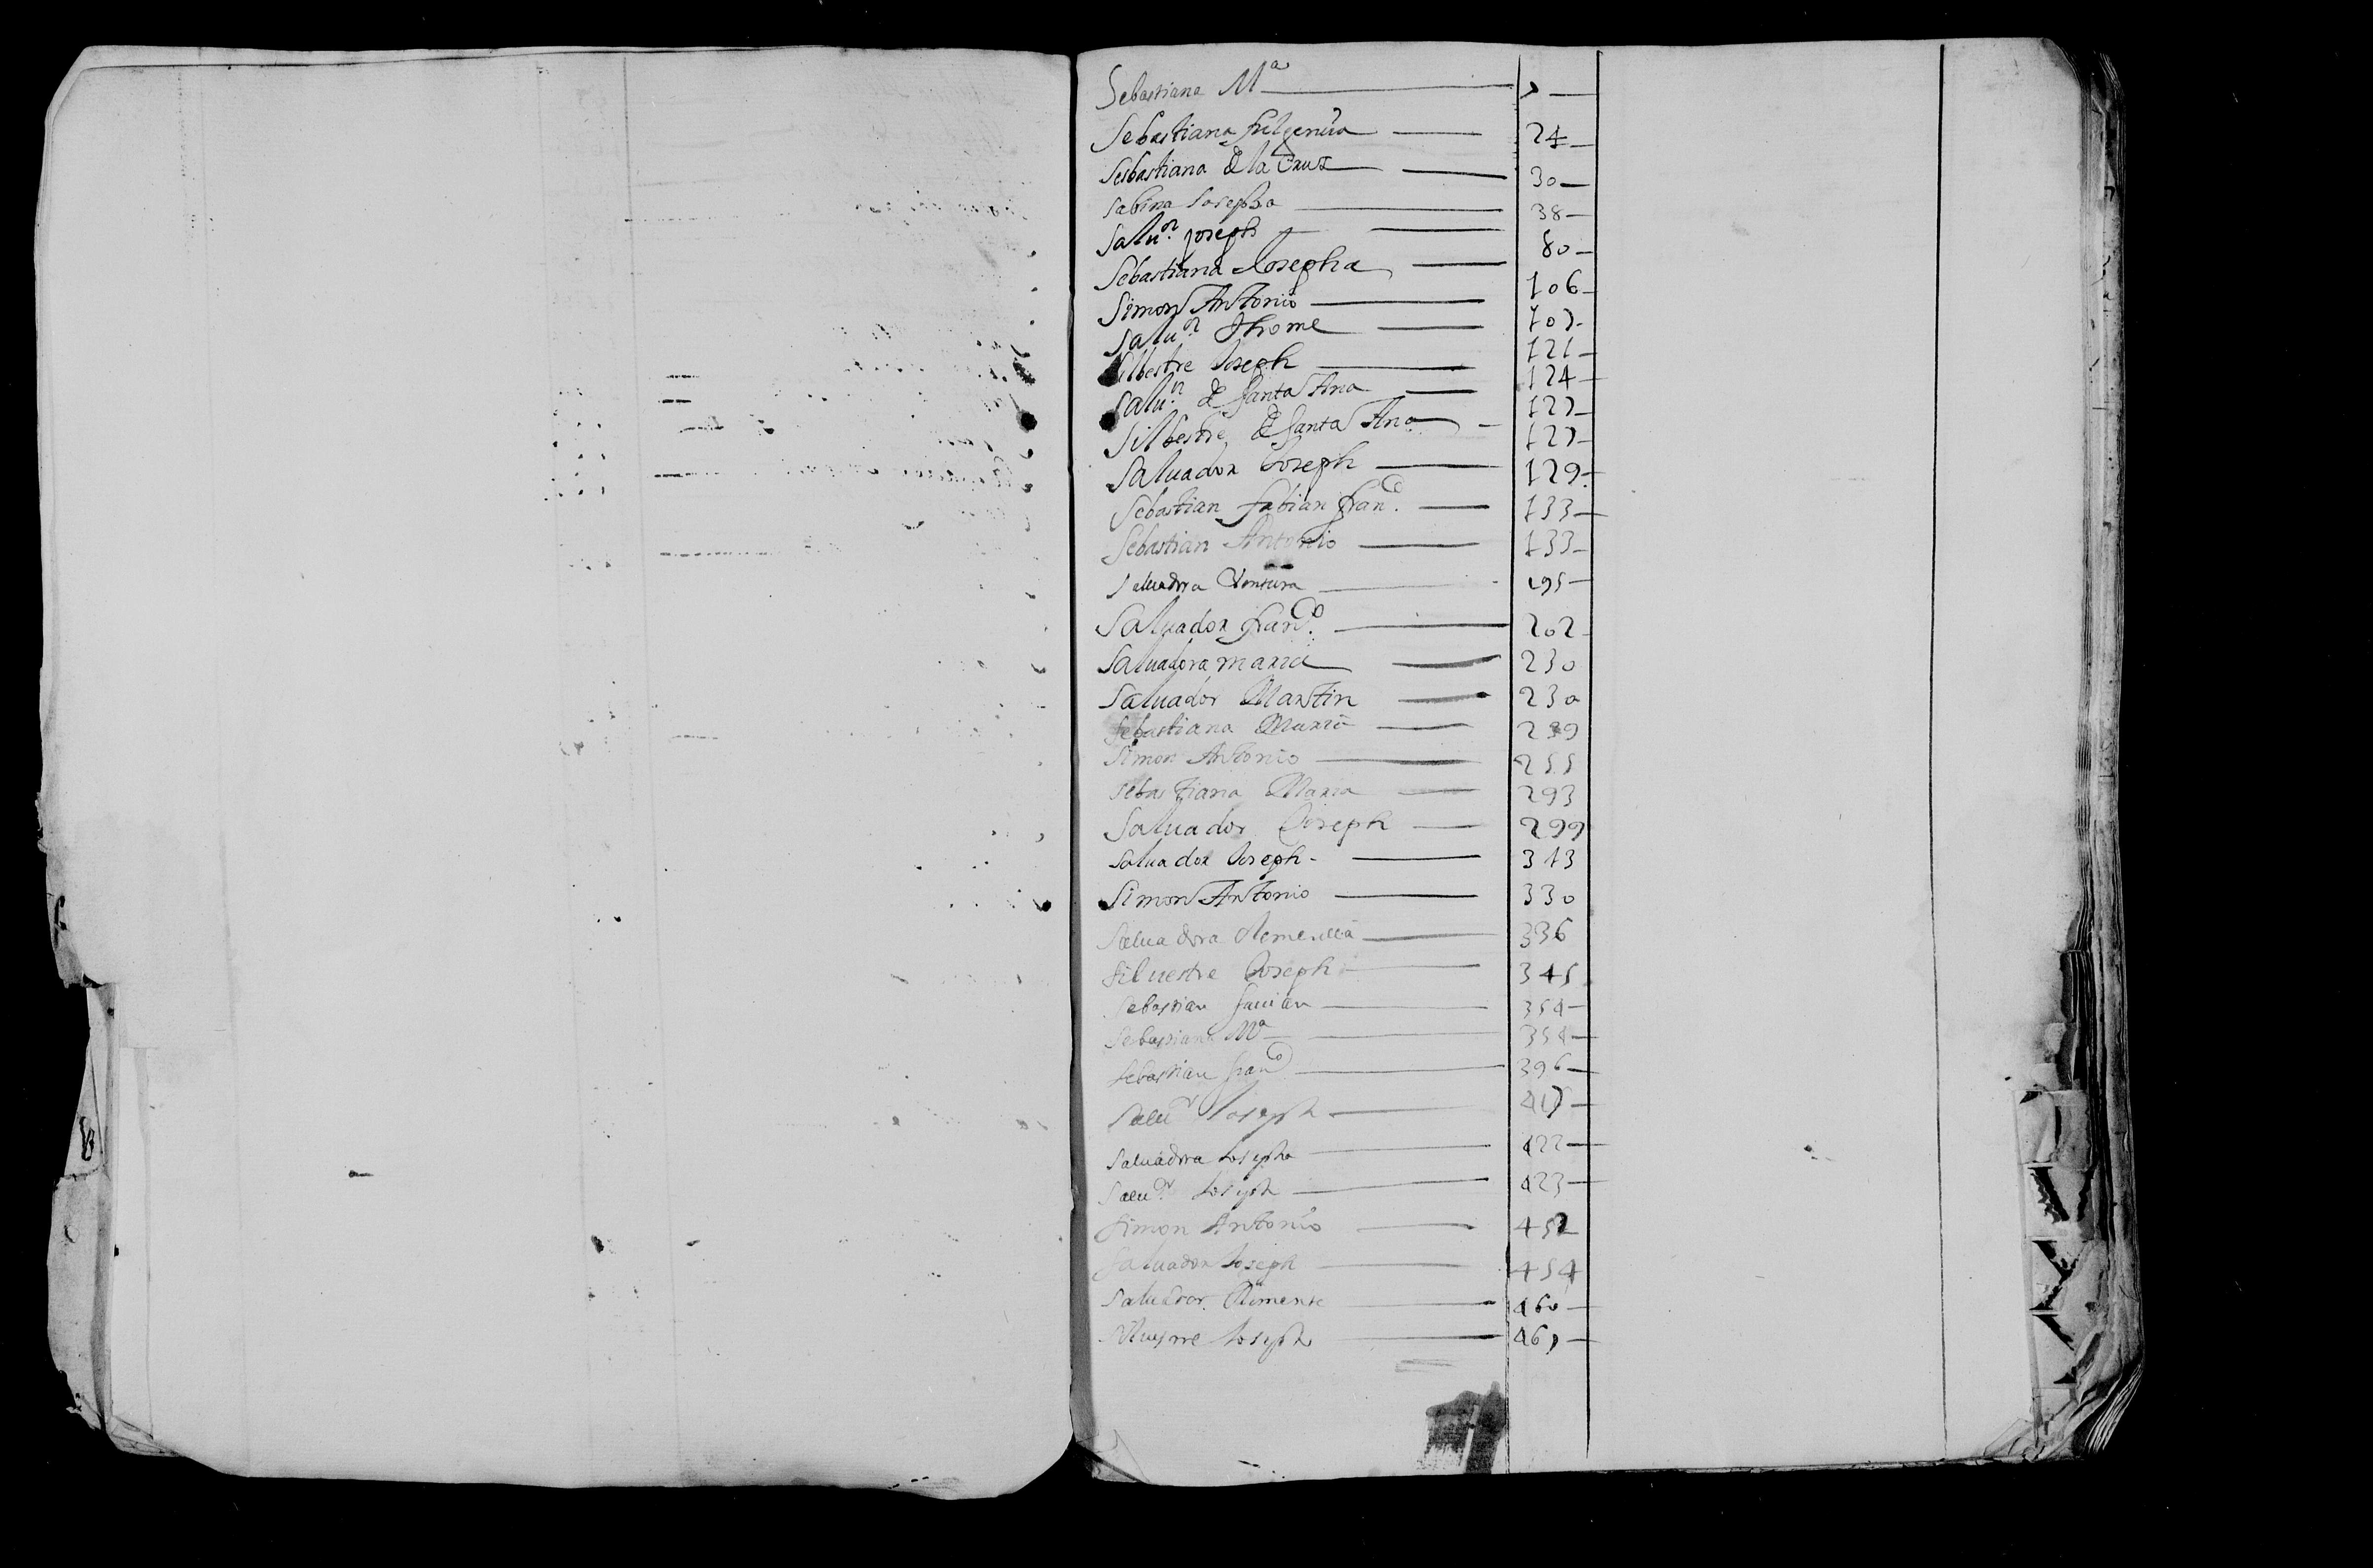 Sebastiana Mª 7
Sebastiana fulgencia 24
Sesbastiana de la Cruz 30
Sabina Josepha 38
Salu.or Joseph 80
Sebastiana Josepha 106
Simon Antonio 107
Salu.or Thome 121
Silbestre Joseph 124
Salu.or de Santa Ana 127
Silbestre de Santa Ana 127
Saluador Joseph 129
Sebastian fabian fran.co 133
Sebastian Antonio 133
Saluadora Ventura 195
Saluador fran.co 202
Saluadora maria 230
Saluador Martin 230
Sebastiana Maria 239
Simon Antonio 255
Sebastiana Maria 293
Saluador Joseph 299
Saluador Joseph 313
Simon Antonio 330
Saluadora 336
Siluestre Joseph 345
Sebastian fauian 354
Sebastiana Mª 354
Sebastian fran.co 396
Salu.or Joseph 417
Saluadora Josepha 422
Salu.or Joseph 423
Simon Antonio 452
Saluador Joseph 454
Saluador Climente 460
Siluestre Joseph 467